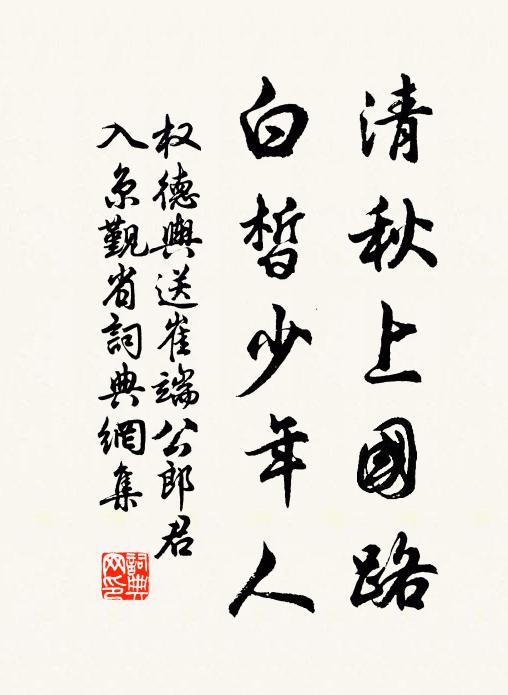 清秋上國路
白皙少年人
权德輿送崔端公郎君
入京觀省詞典網集
詞典網印